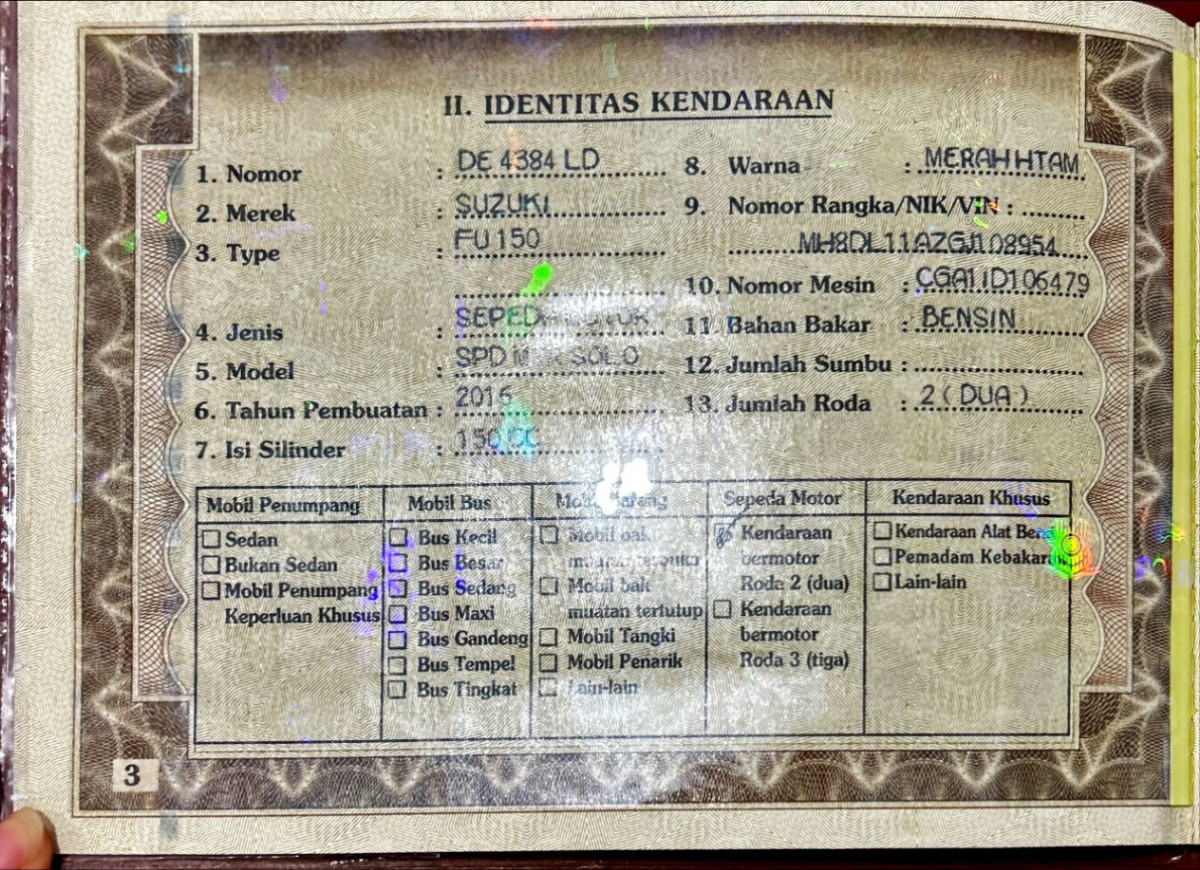 II. IDENTITAS KENDARAAN
1. Nomor : DE 4384 LD
2. Merek : SUZUKI
3. Type : FU 150
4. Jenis :
5. Model : SPD SOLO
6. Tahun Pembuatan : 2016
7. Isi Silinder : 150 CC
8. Warna : MERAH HTAM
9. Nomor Rangka/NIK/VIN :
MH8DL11AZGJ108954
10. Nomor Mesin : CGA1ID106479
11. Bahan Bakar : BENSIN
12. Jumlah Sumbu :
13. Jumlah Roda : 2 ( DUA )
Mobil Penumpang
Sedan
Bukan Sedan
Mobil Penumpang
Keperluan Khusus
Mobil Bus
Bus Kecil
Bus Besar
Bus Sedang
Bus Maxi
Bus Gandeng
Bus Tempel
Bus Tingkat
Mobil bak
Mobil bak
muatan tertutup
Mobil Tangki
Mobil Penarik
Lain-lain
Sepeda Motor
Kendaraan
bermotor
Roda 2 (dua)
Kendaraan
bermotor
Roda 3 (tiga)
Kendaraan Khusus
Kendaraan Alat
Pemadam
Lain-lain
3